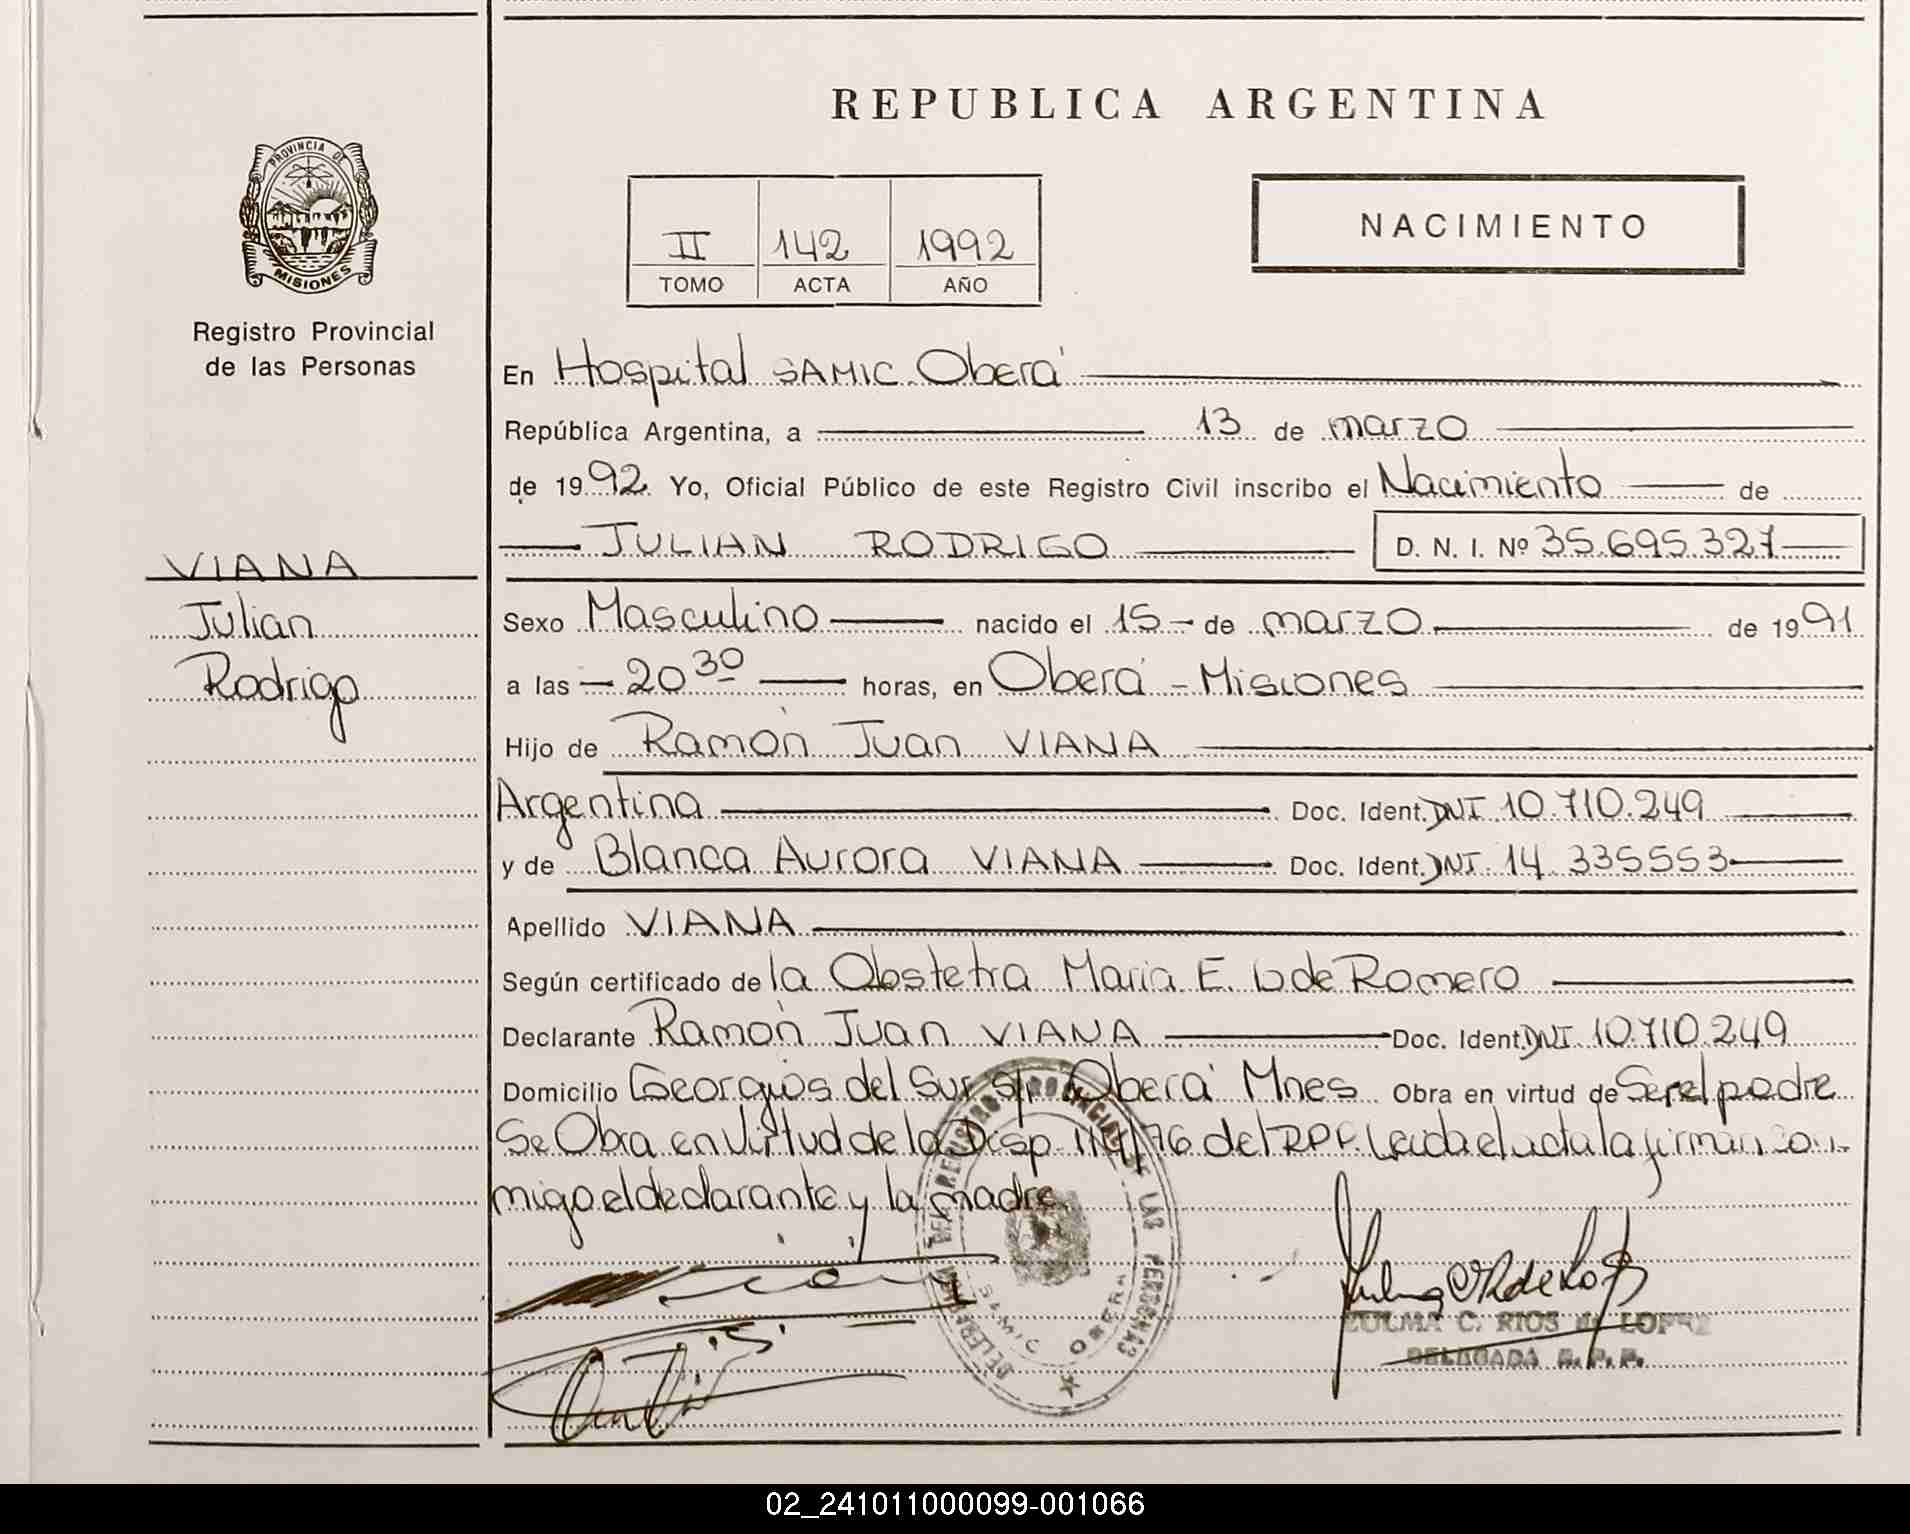 REPUBLICA ARGENTINA
PROVINCIA DE
MISIONES
Registro Provincial
de las Personas
II 142 1992
TOMO ACTA AÑO
NACIMIENTO
VIANA
Julian
Rodrigo
En Hospital SAMIC Oberá
República Argentina, a 13 de marzo
de 1992 Yo, Oficial Público de este Registro Civil inscribo el Nacimiento de
JULIAN RODRIGO D. N. I. Nº 35.695.327
Sexo Masculino nacido el 15 de marzo de 1991
a las 20 30 horas, en Oberá - Misiones
Hijo de Ramón Juan VIANA
Argentina Doc. Ident. DNI 10.710.249
y de Blanca Aurora VIANA Doc. Ident. DNI. 14.335553
Apellido VIANA
Según certificado de la Obstetra Maria E. de Romero
Declarante Ramón Juan VIANA Doc. Ident. DNI 10.710.249
Domicilio Georgias del Sur s/n Oberá Mnes Obra en virtud de Ser el padre
Se Obra en Virtud de la Disp. /76 del RPP. Leida el acta la firman con-
migo el declarante y la madre.
DELEGACION DEL REGISTRO PROVINCIAL DE LAS PERSONAS
SAMIC OBERA
ZULMA C. RIOS de LOPEZ
DELEGADA R. P. P.
02_241011000099-001066